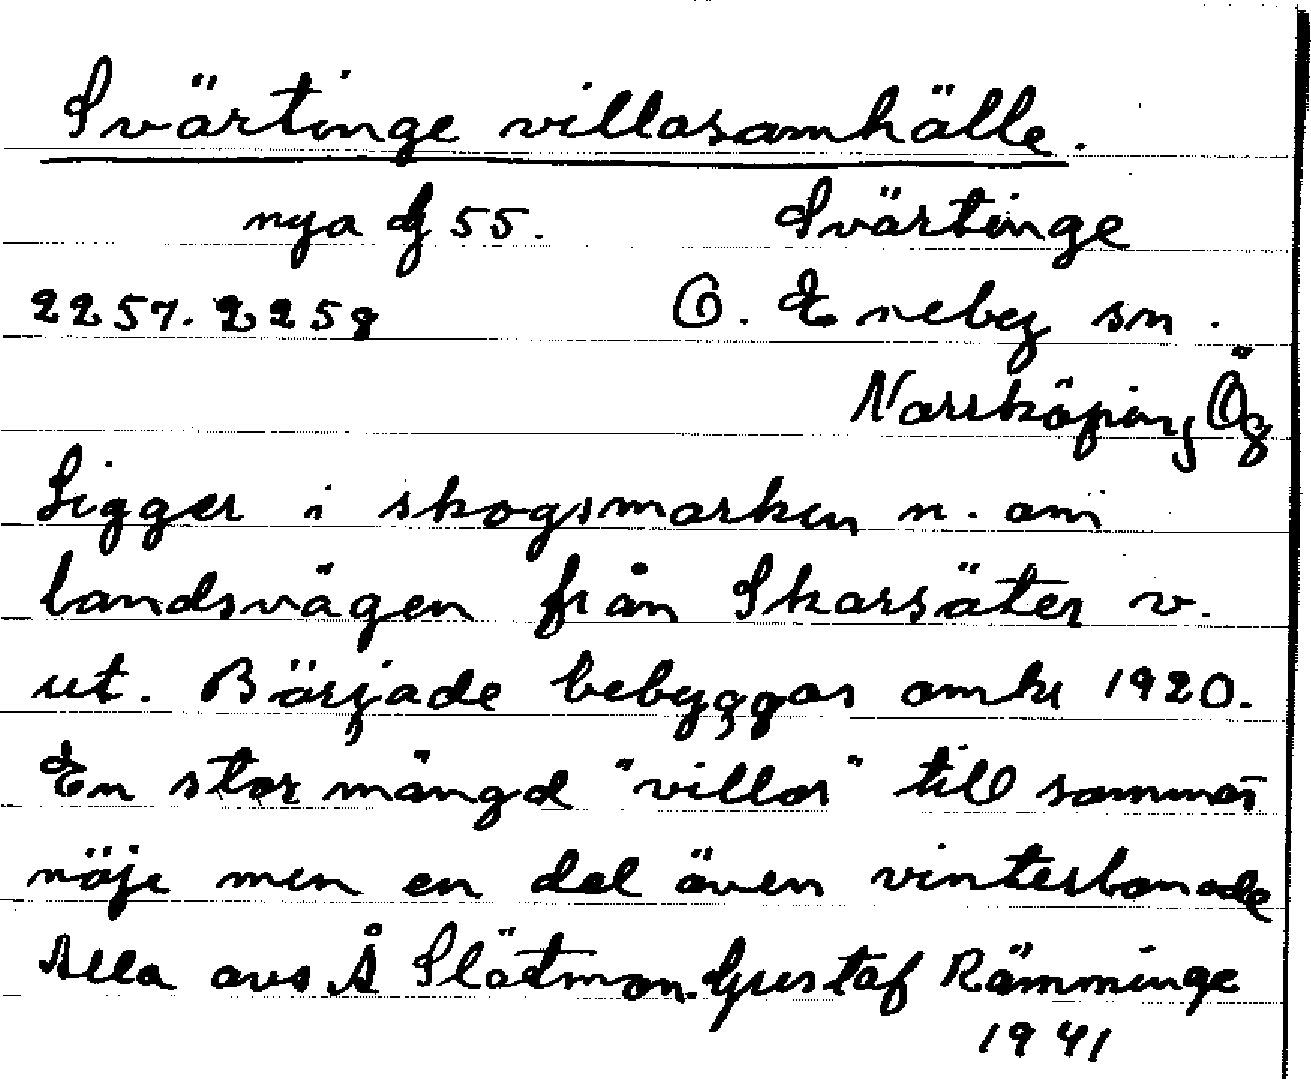 Svärtinge villasamhälle.
nya df 55. Svärtinge
2257. 2258 Ö. Eneby sn.
Norrköping Ög
Ligger i skogsmarken n. om
landsvägen från Skarsäter v.
ut. Började bebyggas omkr 1920.
En stor mängd "villor" till sommar
nöje men en del även vinterbonade
Alla avs Å Slätmon. Gustaf Rämminge
1941